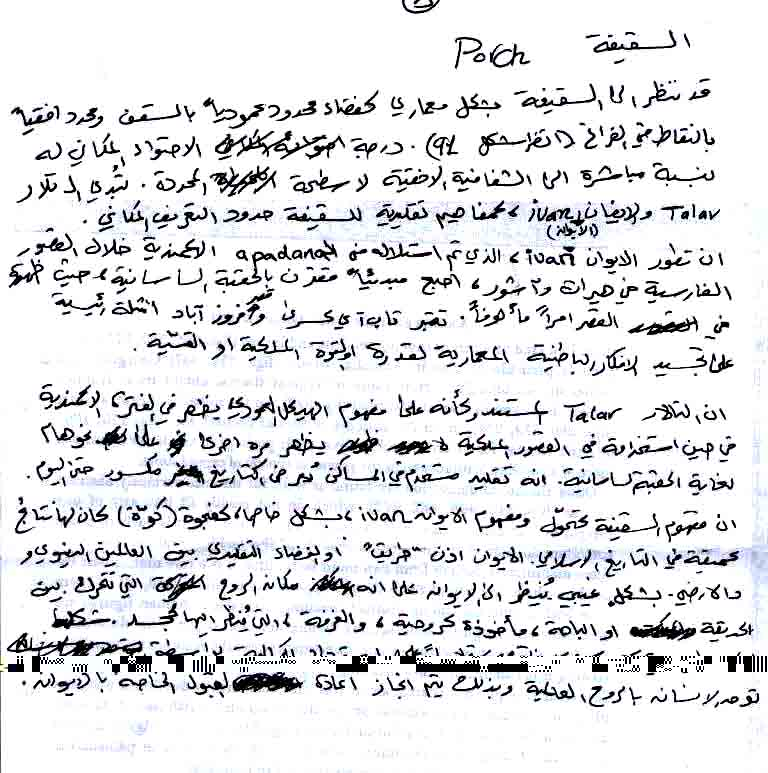 السقيفة Porch
قد ننظر الى السقيفة بشكل معماري كفضاء محدود عمودياً بالسقف ومحدد افقياً
بالنقاط في الفراغ (انظر شكل 92). درجة الاحتواء المكاني له
نسبة مباشرة الى الشفافية الافقية لاسطحة المحددة.
Talar والايفان ivan (الايوان) كمفاهيم تقليدية للسقيفة حدود التعريف المكاني.
ان تطور الايوان ivan، الذي تم استلاله من apadana الاخمندية خلال العصور
الفارسية في هيرات وآشور، اصبح مبدئياً مقترن بالحقبة الساسانية، حيث ظهرت
في القصر امراً مألوفاً. تعتبر كسرى وفيروز آباد امثلة رئيسية
على تجسيد الافكار الباطنية المعمارية لقدرة او القوة الملكية او القدسية.
ان التالار Talar المستند كأنه على مفهوم الهيكل العمودي يظهر في الفترة الاخمندية
في حين استخدامه في القصور الملكية يظهر مرة اخرى
لغاية الحقبة الساسانية. انه تقليد مستخدم في المساكن عبر التاريخ حتى اليوم.
ان مفهوم السقيفة ومفهوم الايوان ivan، بشكل خاص، كفجوة (كوّة) كان لها نتائج
عميقة في التاريخ الاسلامي. الايوان اذن "طريق" او الفضاء التقليدي بين العالمين الدنيوي و
والارضي. بشكل غيبي يُنظر الى الايوان على انه مكان الروح التي تتحرك بين
الحديقة او الباحة، مأخوذة كروحية، والغرفة، التي يُنظر اليها كجسد.
توحد الانسان بالروح العالمية وبذلك يتم انجاز اعادة القبول الخاصة بالايوان.